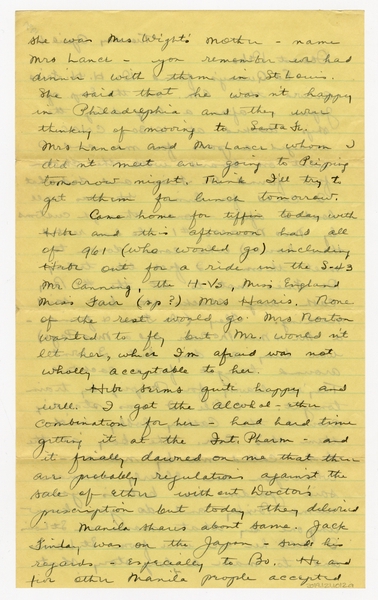 she was Mrs Wight's mother - name
Mrs Lance - you remember we had
dinner with them in St Louis.
She said that he wasn't happy
in Philadelphia and they were
thinking of moving to Santa Fe.
Mrs Lance and Mr Lance whom I
didn't meet are going to Peiping
tomorrow night. Think I'll try to
get them for lunch tomorrow.
Came home for tiffin today with
and this afternoon had all
of 961 (who would go) including
out for a ride in the S-43
Mr Canning, the H-V's, Miss England
Miss Fair (sp?) Mrs Harris. None
of the rest would go. Mrs Norton
wanted to fly but Mr. wouldn't
let her, which I'm afraid was not
wholly acceptable to her.
seems quite happy and
well. I got the alcohol-ether
combination for her - had hard time
getting it at the Int. Pharm - and
it finally dawned on me that there
are probably regulations against the
sale of ether without Doctor's
prescription but today they delivered
Manila shares about same. Jack
was on the Japan - sends his
regards - especially to Bo. He and
four other Manila people accepted